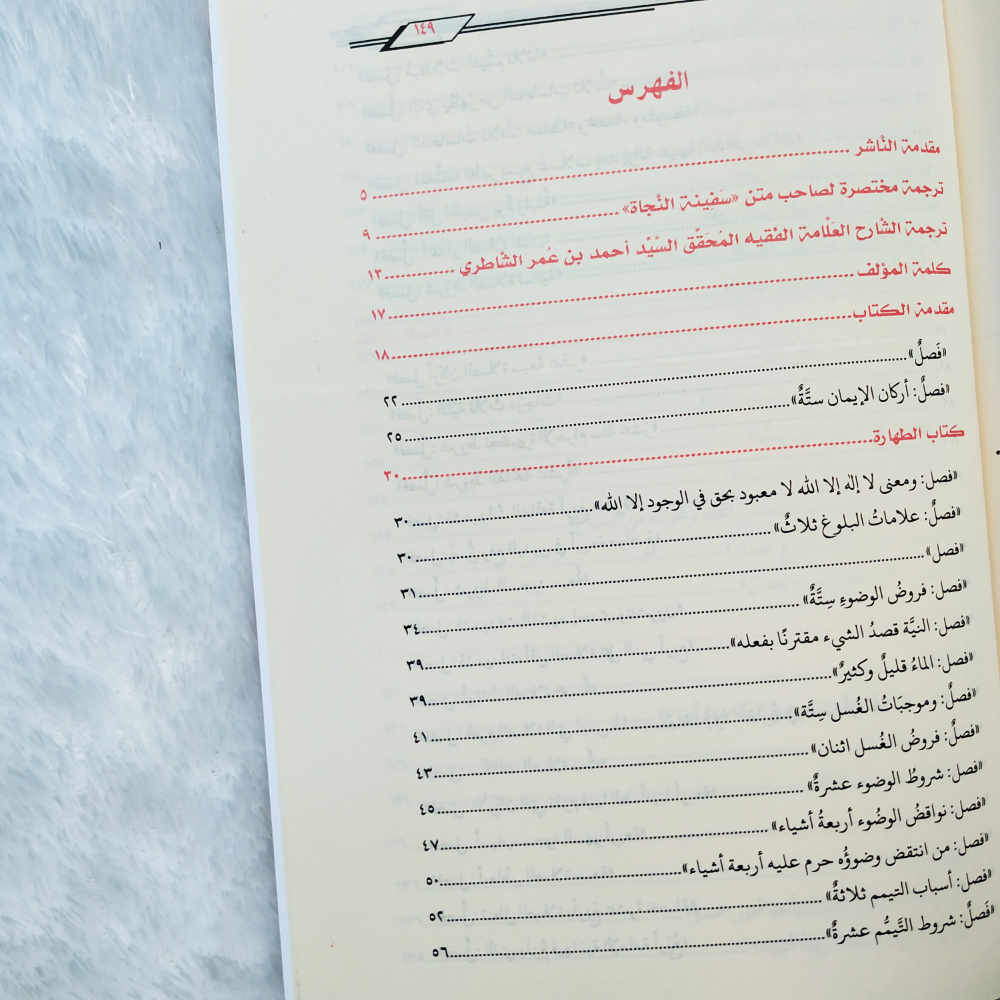 ١٤٩
الفهرس
مقدمة النَّاشر ٥
ترجمة مختصرة لصاحب متن «سَفينة النَّجاة» ٩
ترجمة الشَّارح العَلَّامة الفقيه المُحَقِّق السَّيِّد أحمد بن عُمر الشَّاطري ١٣
كلمة المؤلف ١٧
مقدمة الكتاب ١٨
«فَصلٌ» ٢٢
«فصلٌ: أركان الإيمان ستَّةٌ» ٢٥
كتاب الطهارة ٣٠
«فصل: ومعنى لا إله إلا الله لا معبود بحق في الوجود إلا الله» ٣٠
«فصلٌ: علاماتُ البلوغ ثلاثٌ» ٣٠
«فصل» ٣١
«فصل: فروضُ الوضوءِ سِتَّةٌ» ٣٤
«فصل: النيَّة قصدُ الشيء مقترنًا بفعله» ٣٩
«فصل: الماءُ قليلٌ وكثيرٌ» ٣٩
«فصلٌ: وموجبَاتُ الغُسل سِتَّة» ٤١
«فصلٌ: فروضُ الغُسل اثنان» ٤٣
«فصل: شروطُ الوضوء عشرةٌ» ٤٥
«فصل: نواقضُ الوضُوء أربعةُ أشياء» ٤٧
«فصل: من انتقض وضوؤُه حرم عليه أربعة أشياء» ٥٠
«فصل: أسباب التيمم ثلاثةٌ» ٥٢
«فَصلٌ: شروط التَّيمُّم عشرةٌ» ٥٦